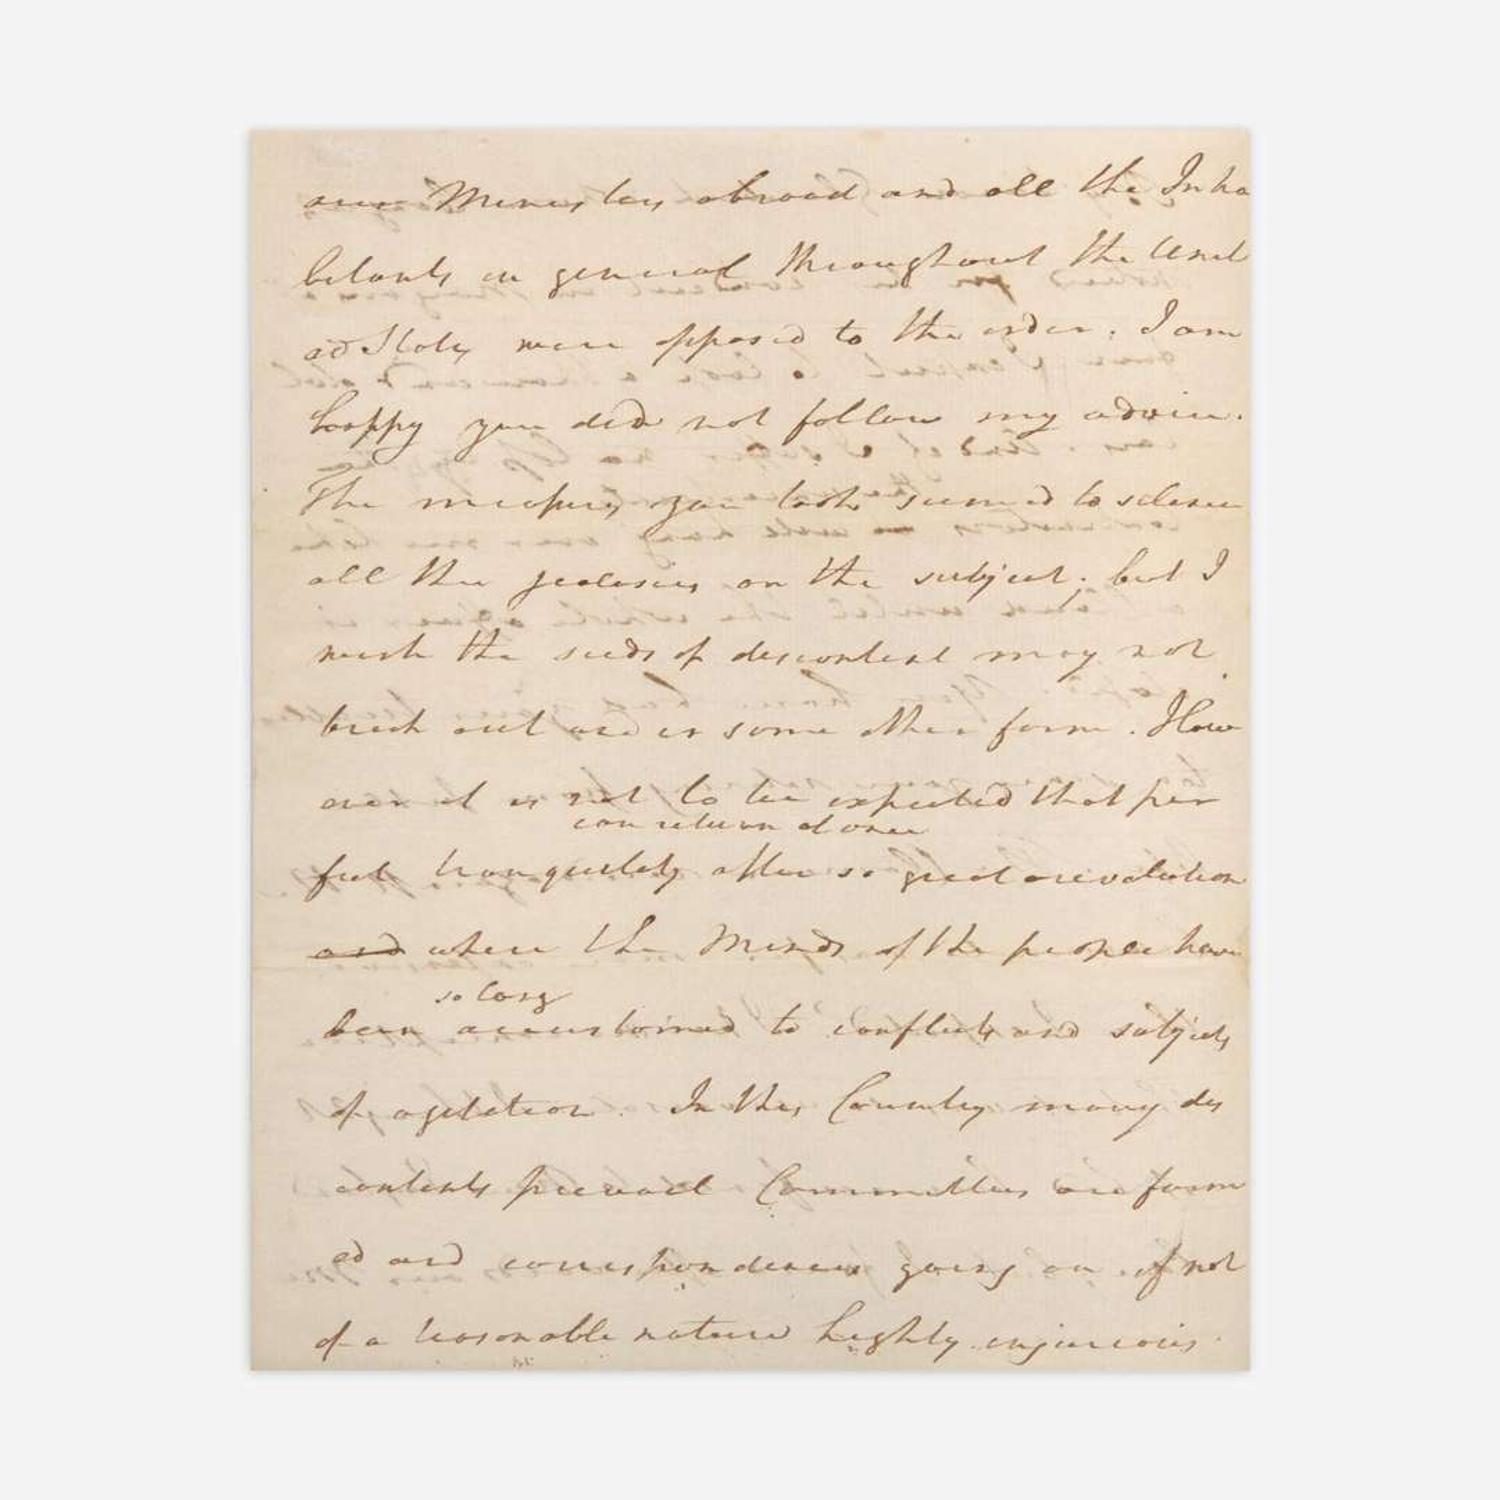 our Ministers abroad and all the Inha
bitants in general throughout the Unit
ed States were opposed to the order. I am
happy you did not follow my advice.
The measures you took seemed to silence
all the jealosies on the subject; but I
wish the seeds of discontent may not
break out in some other form. How
ever it is not to be expected that per
can return at once
fect tranquility after so great a revolution
and where the Minds of the people have
so long
been accustomed to conflicts and subjects
of agitation. In this Country many dis
contents prevail Committees are form
ed and correspondences going on. if not
of a treasonable nature highly injurious.